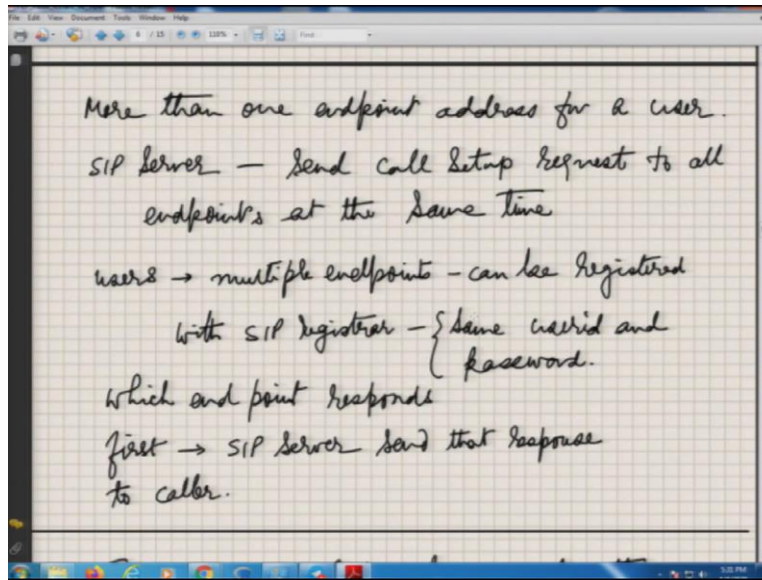 File Edit View Document Tools Window Help
6 / 15 120% Find
More than one endpoint address for a user.
SIP Server — Send call Setup request to all
endpoints at the same time
users → multiple endpoints - can be registered
with SIP registrar - { same userid and
password.
which end point responds
first → SIP Server send that response
to caller.
5:21 PM